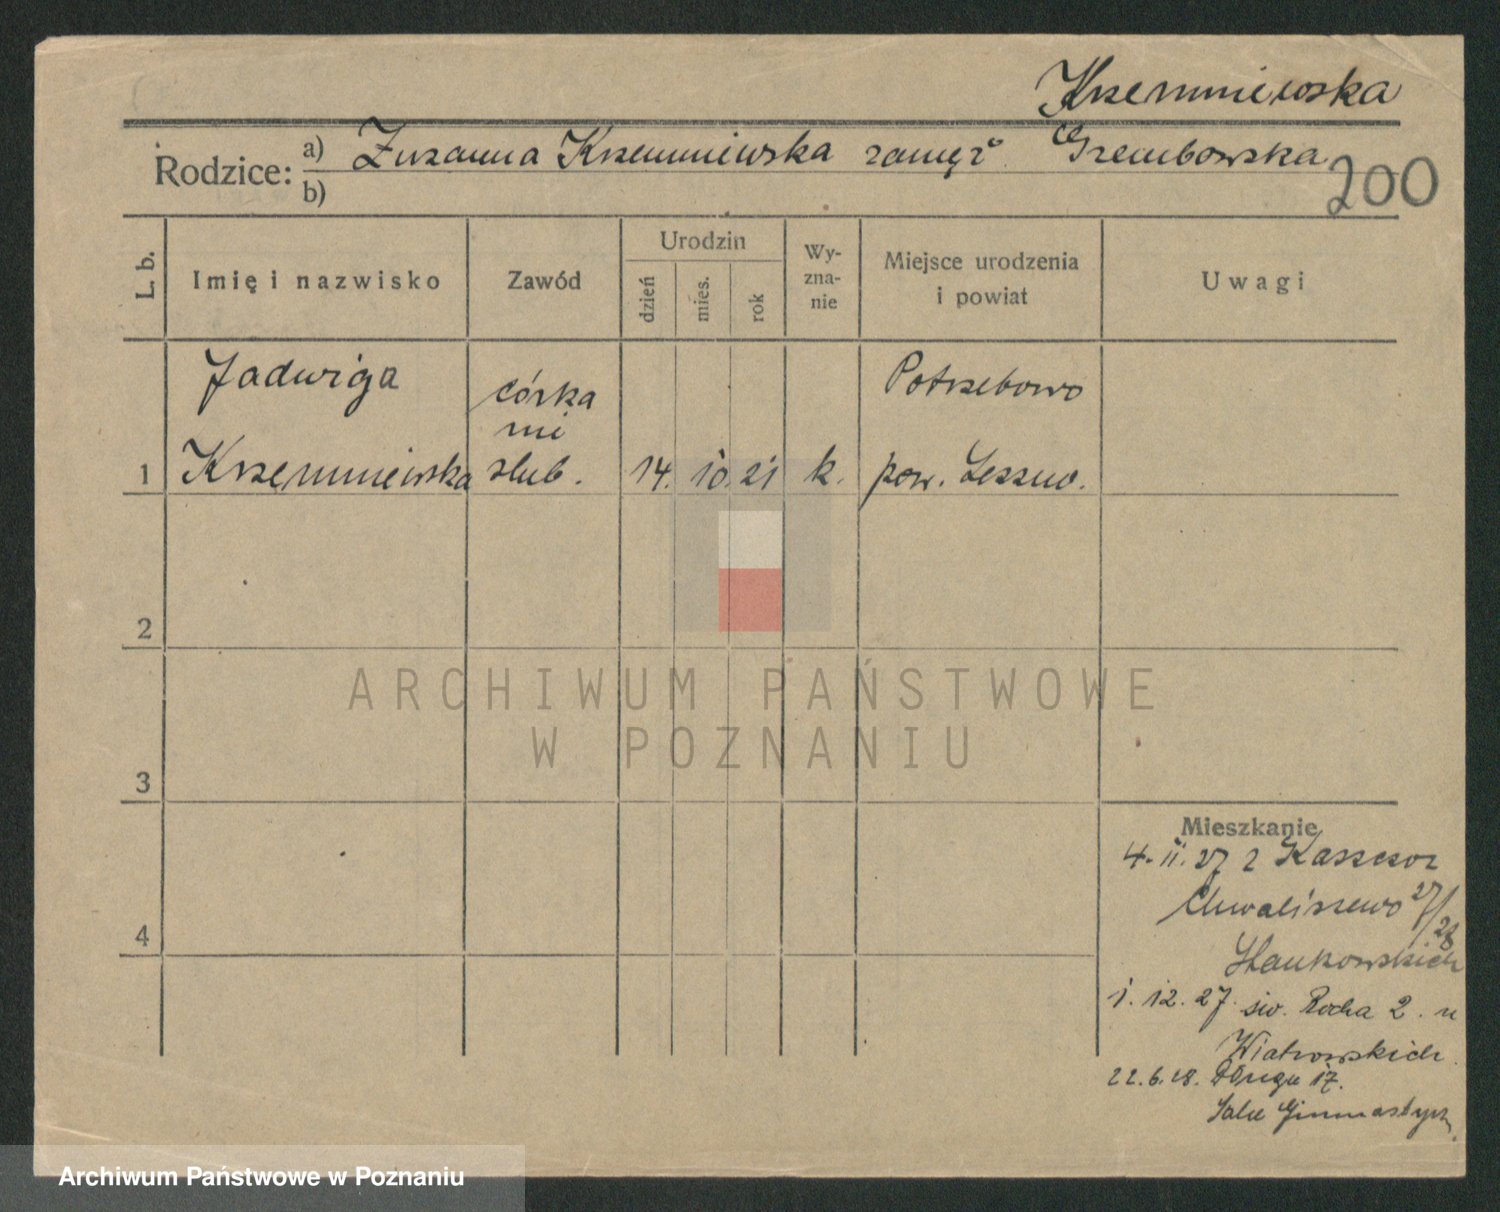 Krzemniewska
Rodzice: a) Zuzanna Krzemniewska zamęż. Grembowska
b)
200
L. b.
Imię i nazwisko
Zawód
Urodzin
dzień
mies.
rok
Wy-
zna-
nie
Miejsce urodzenia
i powiat
Uwagi
Jadwiga
córka
Potrzebowo
ni
1 Krzemniewska ślub. 14. 10. 21 k. pow. Leszno.
2
ARCHIWUM PAŃSTWOWE
W POZNANIU
3
Mieszkanie
4. 11. 27 z
Chwaliszewo 27/28
4
1. 12. 27. św. Rocha 2. u
Wiatrowskich
22.6.28. Długa 17.
Sala Gimnastycz.
Archiwum Państwowe w Poznaniu